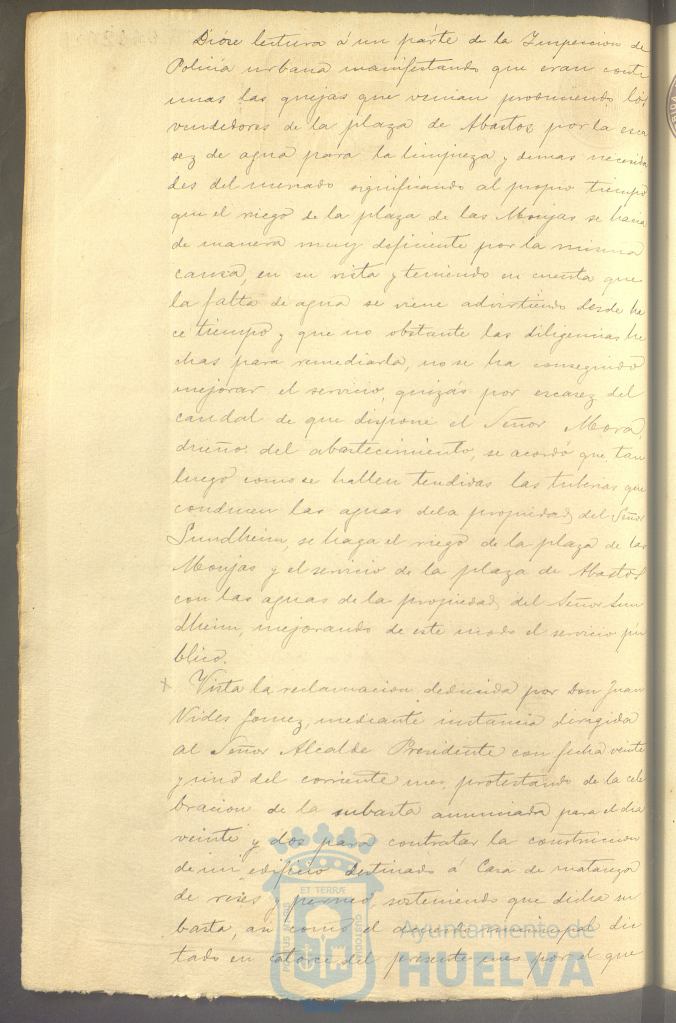 Dióse lectura á un parte de la Inspeccion de
Policia urbana manifestando que eran conti
nuas las quejas que venian produciendo los
vendedores de la plaza de Abastos por la esca
sez de agua para la limpieza y demas necesida
des del mercado significando al propio tiempo
que el riego de la plaza de las Monjas se hacia
de manera muy deficiente por la misma
causa, en su vista y teniendo en cuenta que
la falta de agua se viene advirtiendo desde ha
ce tiempo y que no obstante las diligencias he
chas para remediarla, no se ha conseguido
mejorar el servicio, quizás por escasez del
caudal de que dispone el Señor Mora,
dueño del abastecimiento, se acordó que tan
luego como se hallen tendidas las tuberias que
conducen las aguas dela propiedad del Señor
Sundheim, se haga el riego de la plaza de las
Monjas y el servicio de la plaza de Abastos
con las aguas de la propiedad del Señor Sun
dheim, mejorando de este modo el servicio pú
blico.
Vista la reclamacion deducida por Don Juan
Vides Gomez, mediante instancia dirigida
al Señor Alcalde Presidente con fecha veinte
y uno del corriente mes, protestando de la cele
bracion de la subasta anunciada para el dia
veinte y dos para contratar la construccion
de un edificio destinado á Casa de matanza
de reses y perneo, sosteniendo que dicha su
basta, asi como el decreto municipal dic
tado en catorce del presente mes por el que
ET TERRÆ
PORTUS MARIS
CUSTODIA
Ayuntamiento de
HUELVA